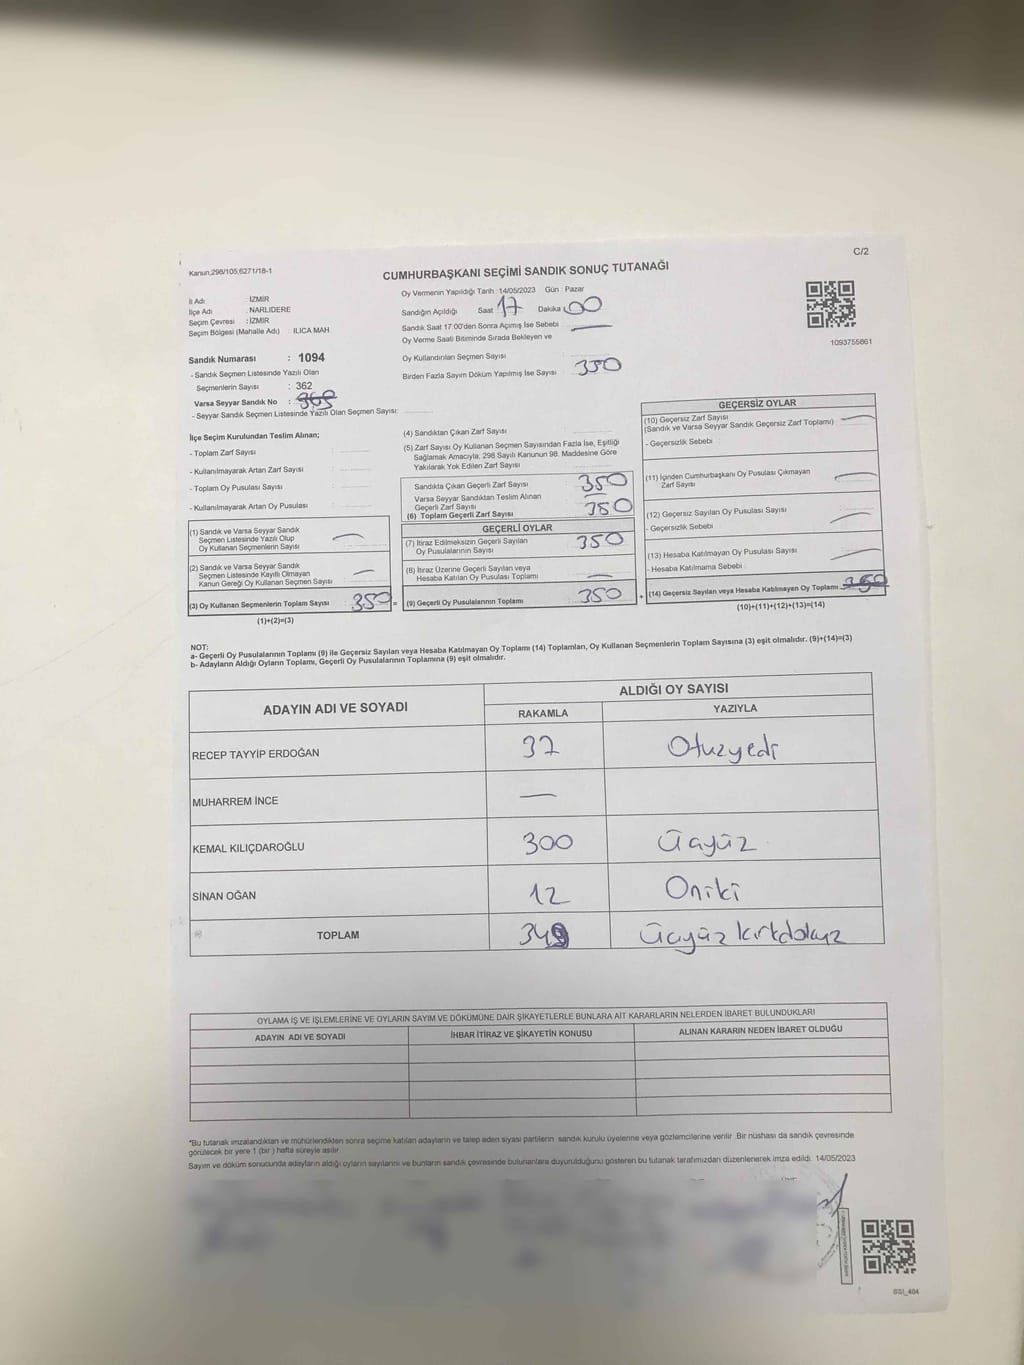 C/2
Kanun;298/105;6271/18-1
CUMHURBAŞKANI SEÇİMİ SANDIK SONUÇ TUTANAĞI
İl Adı : İZMİR
İlçe Adı : NARLIDERE
Seçim Çevresi : İZMİR
Seçim Bölgesi (Mahalle Adı) : ILICA MAH.
Oy Vermenin Yapıldığı Tarih : 14/05/2023 Gün : Pazar
Sandığın Açıldığı Saat 17 Dakika 00
Sandık Saat 17:00'den Sonra Açımış İse Sebebi —
Oy Verme Saati Bitiminde Sırada Bekleyen ve
Oy Kullandırılan Seçmen Sayısı
Birden Fazla Sayım Döküm Yapılmış İse Sayısı 350
1093755861
Sandık Numarası : 1094
- Sandık Seçmen Listesinde Yazılı Olan
Seçmenlerin Sayısı : 362
Varsa Seyyar Sandık No :
- Seyyar Sandık Seçmen Listesinde Yazılı Olan Seçmen Sayısı:
İlçe Seçim Kurulundan Teslim Alınan;
- Toplam Zarf Sayısı :
- Kullanılmayarak Artan Zarf Sayısı :
- Toplam Oy Pusulası Sayısı :
- Kullanılmayarak Artan Oy Pusulası :
(1) Sandık ve Varsa Seyyar Sandık
Seçmen Listesinde Yazılı Olup
Oy Kullanan Seçmenlerin Sayısı —
(2) Sandık ve Varsa Seyyar Sandık
Seçmen Listesinde Kayıtlı Olmayan
Kanun Gereği Oy Kullanan Seçmen Sayısı —
(3) Oy Kullanan Seçmenlerin Toplam Sayısı 350 =
(1)+(2)=(3)
(4) Sandıktan Çıkan Zarf Sayısı :
(5) Zarf Sayısı Oy Kullanan Seçmen Sayısından Fazla İse, Eşitliği
Sağlamak Amacıyla, 298 Sayılı Kanunun 98. Maddesine Göre
Yakılarak Yok Edilen Zarf Sayısı
Sandıkta Çıkan Geçerli Zarf Sayısı 350
Varsa Seyyar Sandıktan Teslim Alınan
Geçerli Zarf Sayısı —
(6) Toplam Geçerli Zarf Sayısı 350
GEÇERLİ OYLAR
(7) İtiraz Edilmeksizin Geçerli Sayılan
Oy Pusulalarının Sayısı 350
(8) İtiraz Üzerine Geçerli Sayılan veya
Hesaba Katılan Oy Pusulası Toplamı —
(9) Geçerli Oy Pusulalarının Toplamı 350 +
GEÇERSİZ OYLAR
(10) Geçersiz Zarf Sayısı
(Sandık ve Varsa Seyyar Sandık Geçersiz Zarf Toplamı) —
- Geçersizlik Sebebi :
(11) İçinden Cumhurbaşkanı Oy Pusulası Çıkmayan
Zarf Sayısı —
(12) Geçersiz Sayılan Oy Pusulası Sayısı —
- Geçersizlik Sebebi :
(13) Hesaba Katılmayan Oy Pusulası Sayısı —
- Hesaba Katılmama Sebebi :
(14) Geçersiz Sayılan veya Hesaba Katılmayan Oy Toplamı 350
(10)+(11)+(12)+(13)=(14)
NOT:
a- Geçerli Oy Pusulalarının Toplamı (9) ile Geçersiz Sayılan veya Hesaba Katılmayan Oy Toplamı (14) Toplamları, Oy Kullanan Seçmenlerin Toplam Sayısına (3) eşit olmalıdır. (9)+(14)=(3)
b- Adayların Aldığı Oyların Toplamı, Geçerli Oy Pusulalarının Toplamına (9) eşit olmalıdır.
ADAYIN ADI VE SOYADI ALDIĞI OY SAYISI
RAKAMLA YAZIYLA
RECEP TAYYİP ERDOĞAN 37 Otuzyedi
MUHARREM İNCE —
KEMAL KILIÇDAROĞLU 300 Üçyüz
SİNAN OĞAN 12 Oniki
TOPLAM 349 Üçyüz kırkdokuz
OYLAMA İŞ VE İŞLEMLERİNE VE OYLARIN SAYIM VE DÖKÜMÜNE DAİR ŞİKAYETLERLE BUNLARA AİT KARARLARIN NELERDEN İBARET BULUNDUKLARI
ADAYIN ADI VE SOYADI İHBAR İTİRAZ VE ŞİKAYETİN KONUSU ALINAN KARARIN NEDEN İBARET OLDUĞU
*Bu tutanak imzalandıktan ve mühürlendikten sonra seçime katılan adayların ve talep eden siyasi partilerin sandık kurulu üyelerine veya gözlemcilerine verilir .Bir nüshası da sandık çevresinde
görülecek bir yere 1 (bir ) hafta süreyle asılır.
Sayım ve döküm sonucunda adayların aldığı oyların sayılarını ve bunların sandık çevresinde bulunanlara duyurulduğunu gösteren bu tutanak tarafımızdan düzenlenerek imza edildi. 14/05/2023